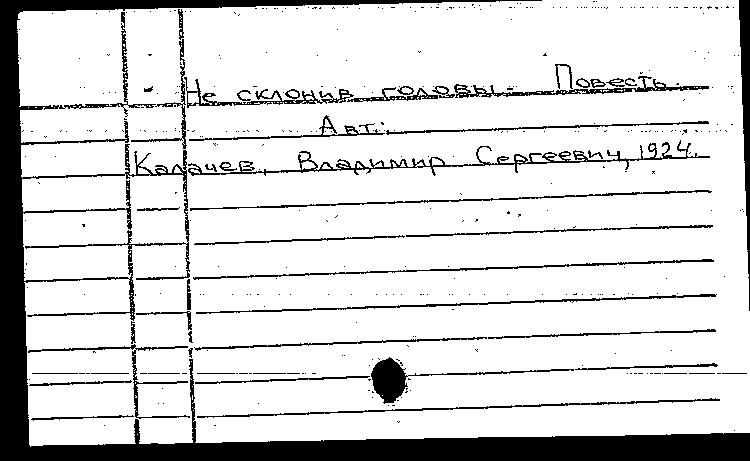 Не склонив головы. Повесть.
Авт.:
Калачев, Владимир Сергеевич, 1924.